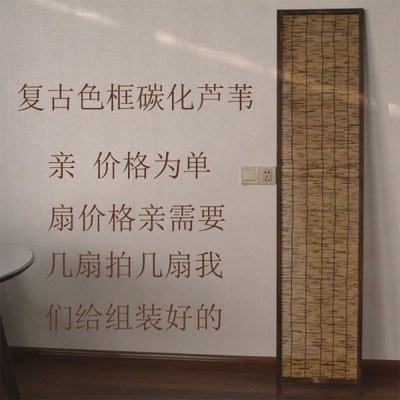 复古色框碳化芦苇
亲 价格为单
扇价格亲需要
几扇拍几扇我
们给组装好的